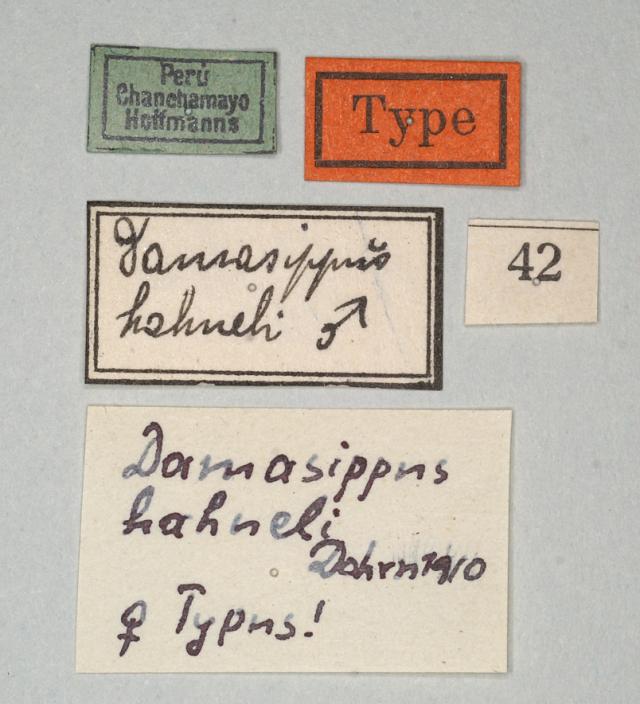 Perú
Chanchamayo
Hoffmanns
Type
Damasippus
hahneli ♂
42
Damasippus
hahneli
Dohrn 1910
♀ Typus!